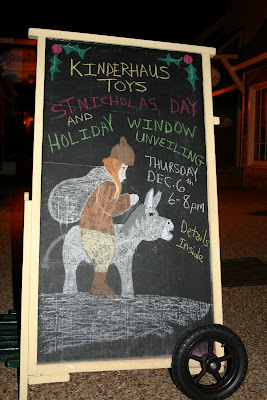 KINDERHAUS
TOYS
ST. NICHOLAS DAY
AND
HOLIDAY WINDOW
UNVEILING
THURSDAY
DEC. 6th
6-8pm
Details
Inside